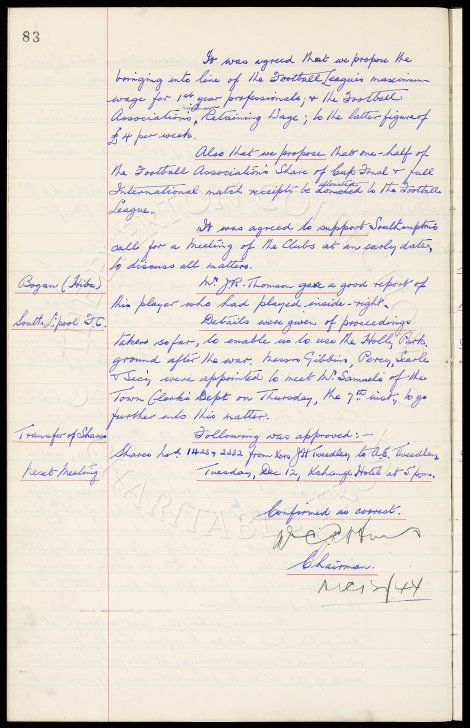 83
It was agreed that we propose the
bringing into line of the Football League's maximum
wage for 1st year professionals; & the Football
Associations, minimum Retaining Wage; to the latter figure of
£4 per week.
Also that we propose that one-half of
the Football Association's Share of Cup Final & full
International match receipts be allocated to the Football
League.
It was agreed to support Southampton's
call for a meeting of the Clubs at an early date,
to discuss all matters.
Bogan (Hibs) Mr. J.R. Thomson gave a good report of
this player who had played inside-right.
South L'pool F.C. Details were given of proceedings
taken so far, to enable us to use the Holly Park,
ground after the war, Messrs Gibbins, Percy, Searle
& Sec'y were appointed to meet Mr. Samuels of the
Town Clerk's Dept on Thursday, the 7th inst, to go
further into this matter.
Transfer of Shares Following was approved:-
Shares nos. 1423 & 2232 from Exors J.H. Tweedley, to A.E. Tweedley.
Next Meeting Tuesday, Dec 12, Xchange Hotel at 5 p.m.
Confirmed as correct.
Chairman.
Dec 12/44